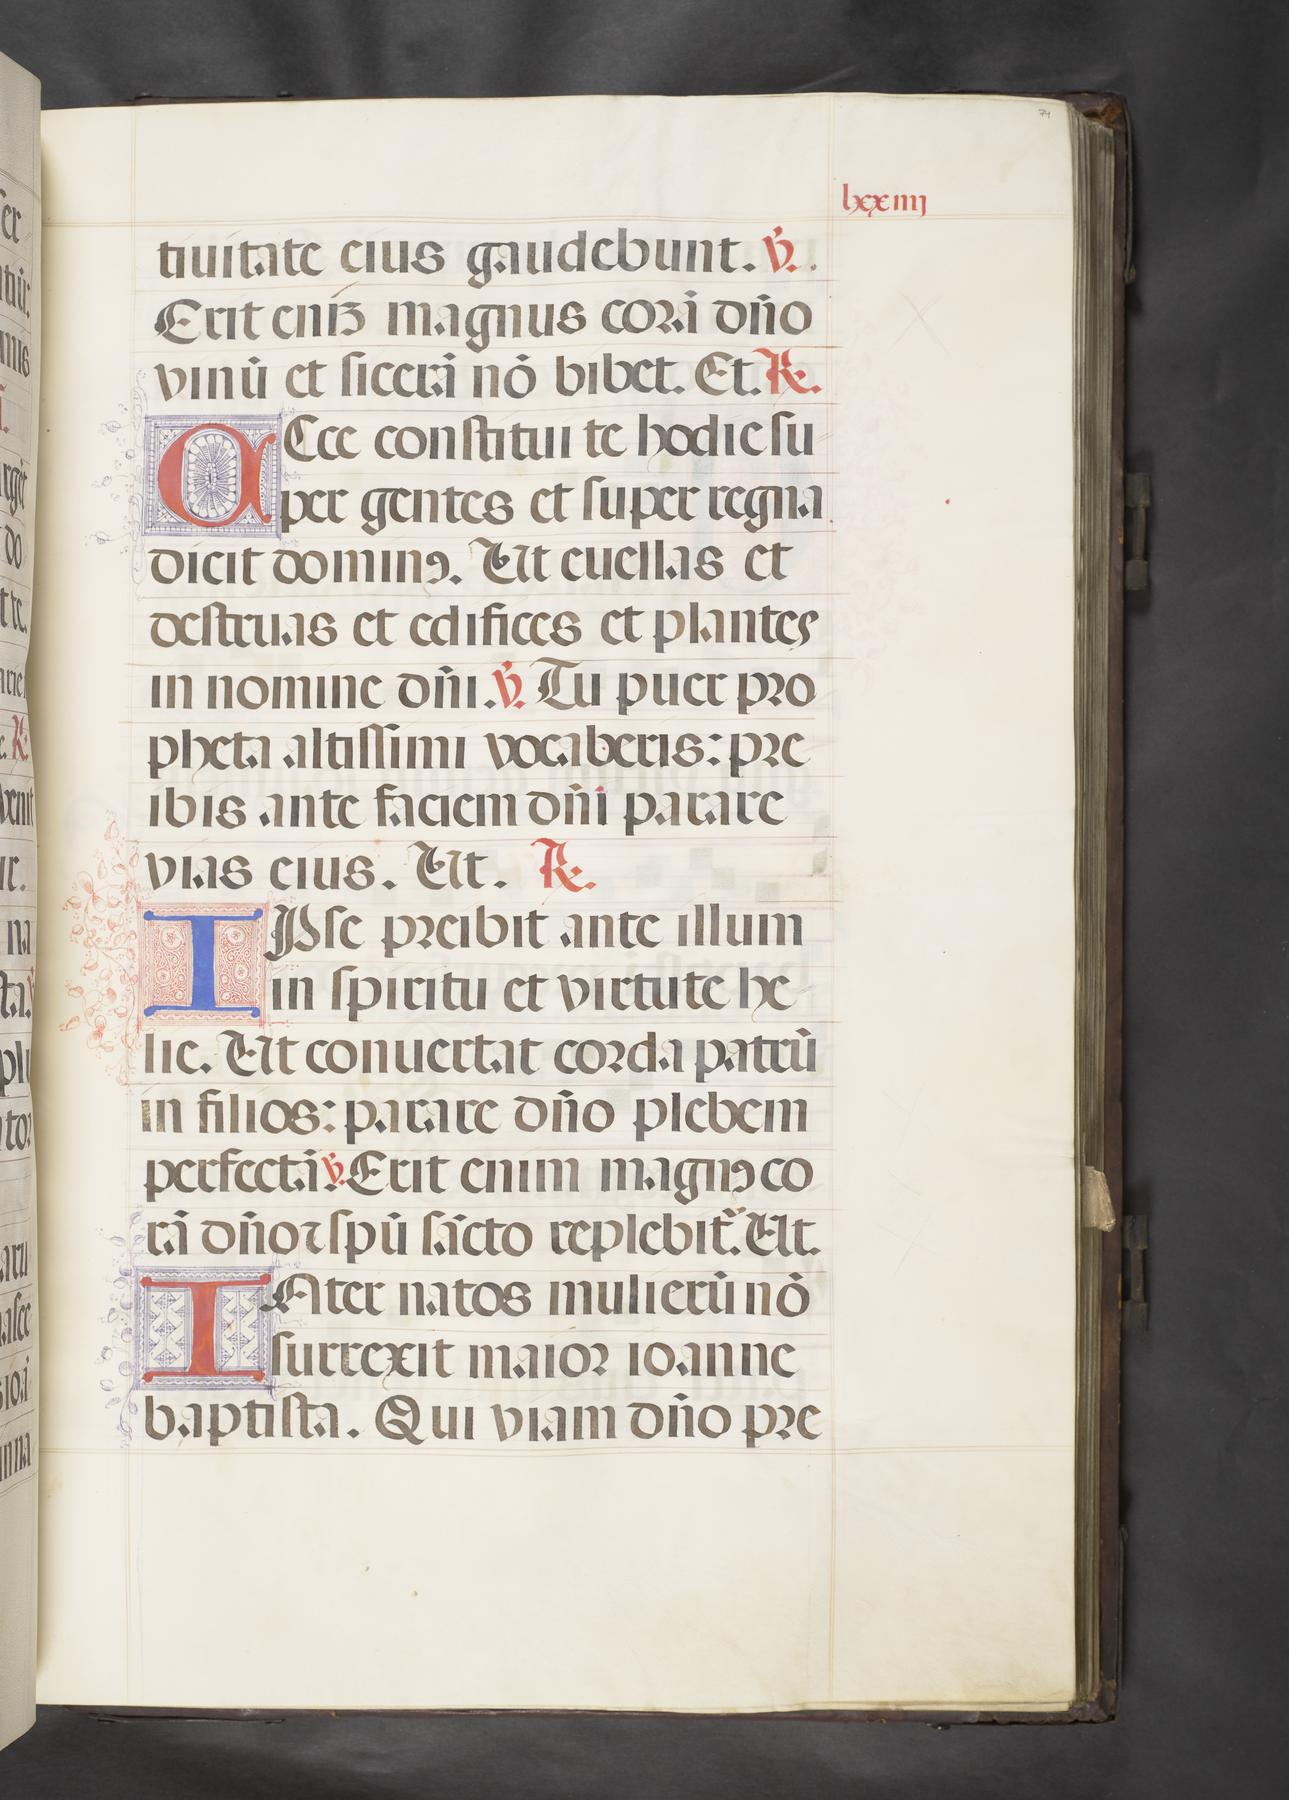 74
lxxiiij
tiuitate eius gaudebunt. ℣.
Erit eniꝫ magnus corā dn̄o
vinū et sicerā nō bibet. Et. ℟.
aEce constitui te hodie su
per gentes et super regna
dicit dominꝰ. Ut euellas et
destruas et edifices et plantes
in nomine dn̄i. ℣. Tu puer pro
pheta altissimi vocaberis: pre
ibis ante faciem dn̄i parare
vias eius. Ut. ℟.
IPse preibit ante illum
in spiritu et virtute he
lie. Ut conuertat corda patrū
in filios: parare dn̄o plebem
perfectā. ℣. Erit enim magnꝰ co
rā dn̄o ⁊ spū sācto replebit̄. Ut.
INter natos mulierū nō
surrexit maior ioanne
baptista. Qui viam dn̄o pre